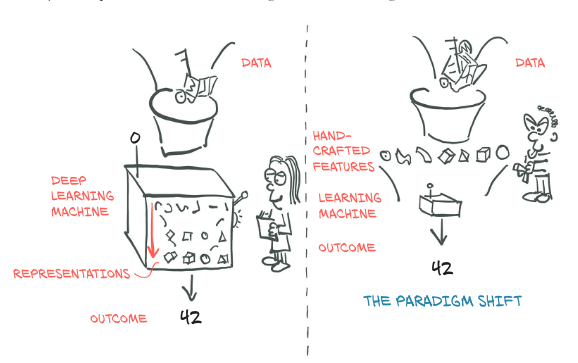 DATA
DEEP
LEARNING
MACHINE
REPRESENTATIONS
OUTCOME
42
DATA
HAND-
CRAFTED
FEATURES
LEARNING
MACHINE
OUTCOME
42
THE PARADIGM SHIFT